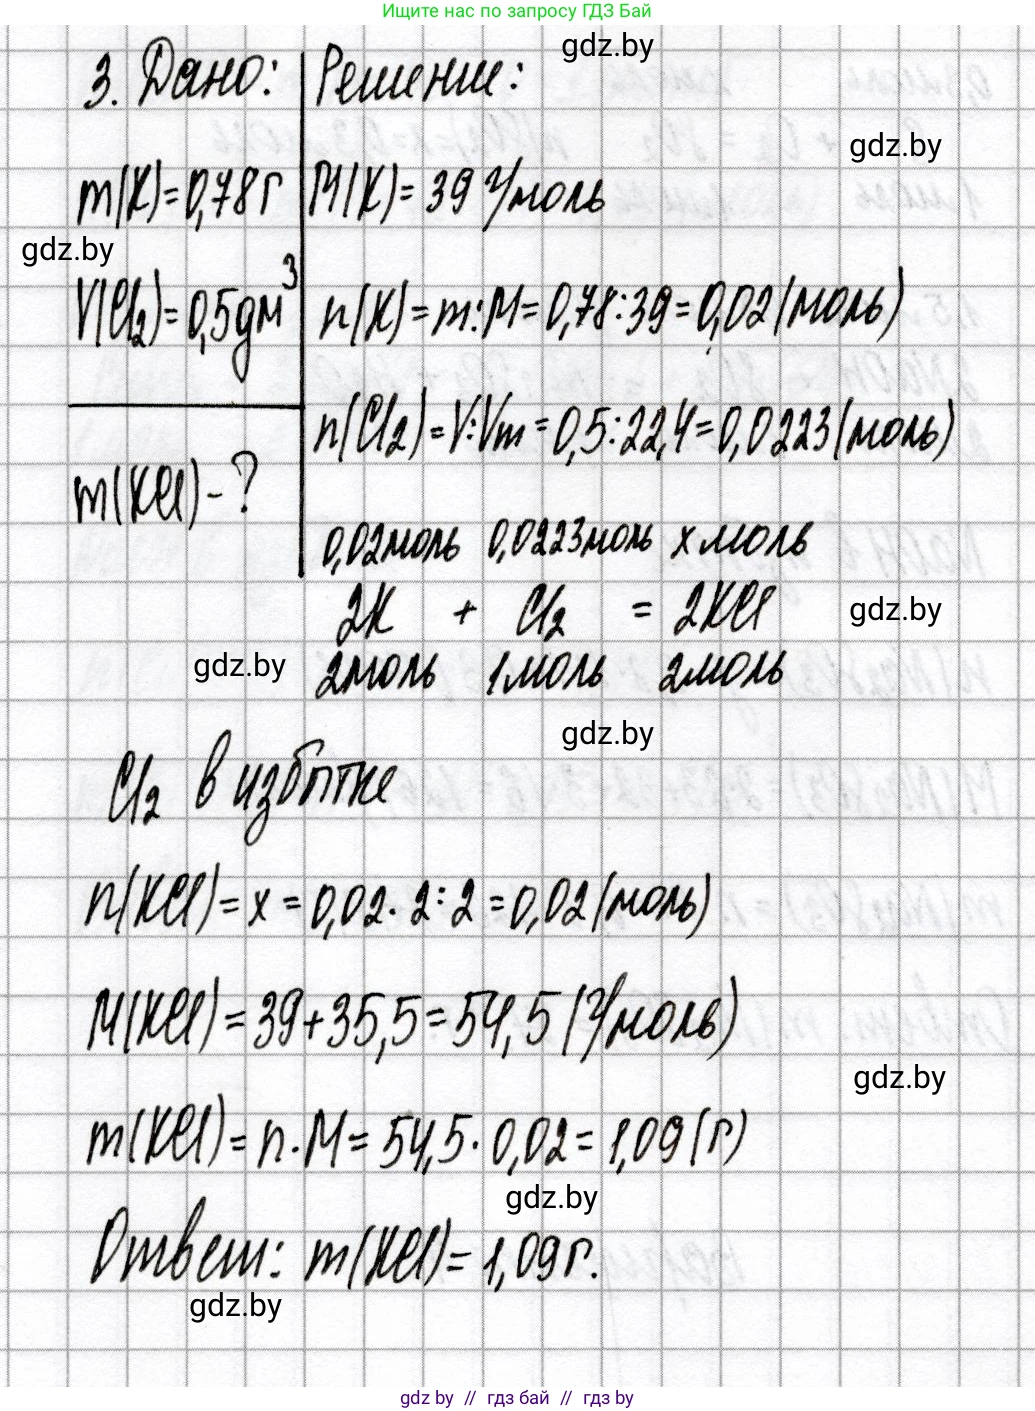 Ищите нас по запросу ГДЗ Бай
gdz.by
3. Дано: Решение:
gdz.by
m(K)=0,78г M(K)=39 г/моль
gdz.by
V(Cl₂)=0,5дм³ n(K)=m:M=0,78:39=0,02(моль)
n(Cl₂)=V:Vm=0,5:22,4=0,0223(моль)
m(KCl)-?
0,02моль 0,0223моль x моль
2K + Cl₂ = 2KCl
gdz.by
2моль 1моль 2моль
gdz.by
gdz.by
Cl₂ в избытке
n(KCl)=x=0,02·2:2=0,02(моль)
M(KCl)=39+35,5=54,5(г/моль)
gdz.by
m(KCl)=n·M=54,5·0,02=1,09(г)
gdz.by
Ответ: m(KCl)=1,09г.
gdz.by
gdz by // гдз бай // гдз by